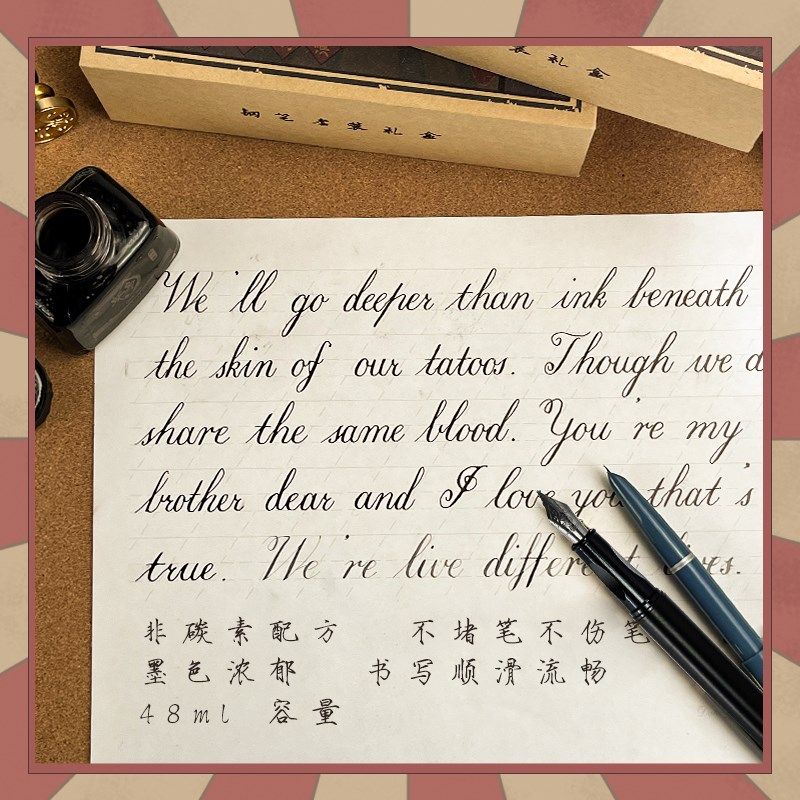 钢笔套装礼盒
装礼盒
We'll go deeper than ink beneath
the skin of our tatoos. Though we
share the same blood. You're my
brother dear and I love you that's
true. We're live different lives.
非碳素配方 不堵笔不伤笔
墨色浓郁 书写顺滑流畅
48ml 容量